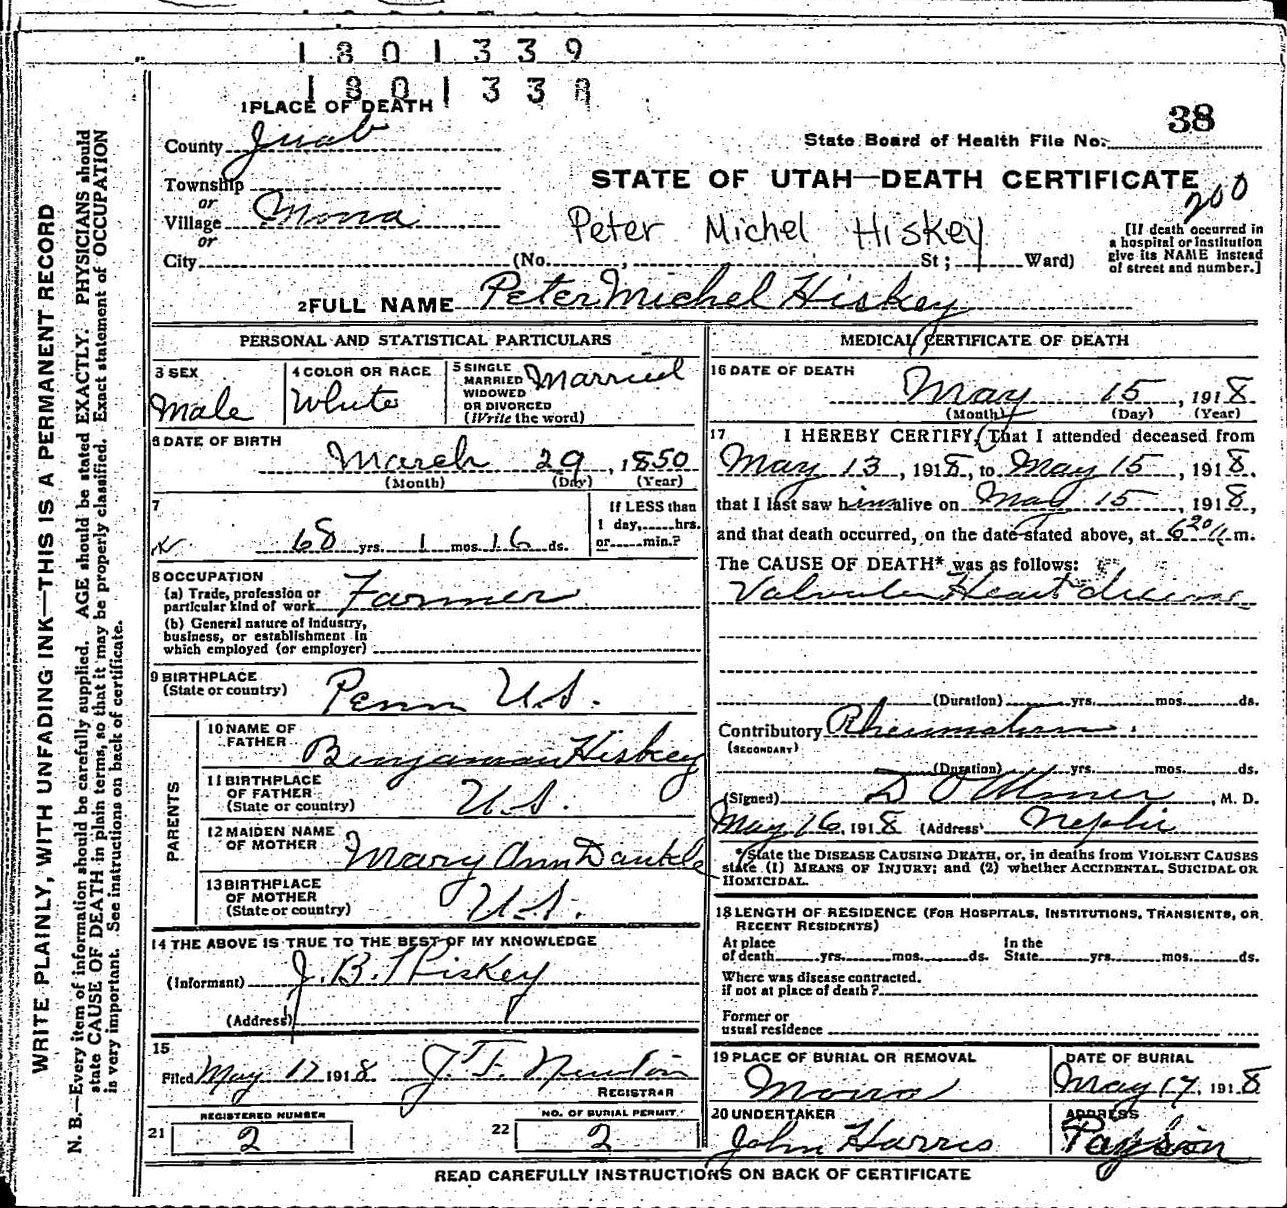 1801339
1801339
1 PLACE OF DEATH
38
County Juab
State Board of Health File No.
Township
STATE OF UTAH—DEATH CERTIFICATE
or
200
Village Mona
Peter Michel Hiskey
or
City (No. , St; Ward)
[If death occurred in
a hospital or institution
give its NAME instead
of street and number.]
2 FULL NAME Peter Michel Hiskey
PERSONAL AND STATISTICAL PARTICULARS
3 SEX
Male
4 COLOR OR RACE
White
5 SINGLE
MARRIED
WIDOWED
OR DIVORCED
(Write the word)
Married
6 DATE OF BIRTH
March 29, 1850
(Month) (Day) (Year)
7
68 yrs. 1 mos. 16 ds.
If LESS than
1 day, hrs.
or min.?
8 OCCUPATION
(a) Trade, profession or
particular kind of work Farmer
(b) General nature of industry,
business, or establishment in
which employed (or employer)
9 BIRTHPLACE
(State or country) Penn U.S.
PARENTS
10 NAME OF
FATHER Benjaman Hiskey
11 BIRTHPLACE
OF FATHER
(State or country) U.S.
12 MAIDEN NAME
OF MOTHER Mary Ann
13 BIRTHPLACE
OF MOTHER
(State or country) U.S.
14 THE ABOVE IS TRUE TO THE BEST OF MY KNOWLEDGE
(Informant) J. B. Hiskey
(Address)
15
Filed May 17 1918 J. F. Newton
REGISTRAR
REGISTERED NUMBER
21 2
NO. OF BURIAL PERMIT
22 2
MEDICAL CERTIFICATE OF DEATH
16 DATE OF DEATH
May 15, 1918
(Month) (Day) (Year)
17 I HEREBY CERTIFY, That I attended deceased from
May 13, 1918, to May 15, 1918,
that I last saw him alive on May 15, 1918,
and that death occurred, on the date stated above, at 6 20 m.
The CAUSE OF DEATH* was as follows:
Valvular Heart disease
(Duration) yrs. mos. ds.
Contributory Rheumatism
(SECONDARY)
(Duration) yrs. mos. ds.
(Signed) D O M.D.
May 16, 1918 (Address) Nephi
*State the DISEASE CAUSING DEATH, or, in deaths from VIOLENT CAUSES
state (1) MEANS OF INJURY; and (2) whether ACCIDENTAL, SUICIDAL OR
HOMICIDAL.
18 LENGTH OF RESIDENCE (FOR HOSPITALS, INSTITUTIONS, TRANSIENTS, OR
RECENT RESIDENTS)
At place
of death yrs. mos. ds.
In the
State yrs. mos. ds.
Where was disease contracted.
if not at place of death?
Former or
usual residence
19 PLACE OF BURIAL OR REMOVAL
Mona
DATE OF BURIAL
May 17, 1918
20 UNDERTAKER
John Harris
ADDRESS
Payson
READ CAREFULLY INSTRUCTIONS ON BACK OF CERTIFICATE
WRITE PLAINLY, WITH UNFADING INK—THIS IS A PERMANENT RECORD
N. B.—Every item of information should be carefully supplied. AGE should be stated EXACTLY. PHYSICIANS should
state CAUSE OF DEATH in plain terms, so that it may be properly classified. Exact statement of OCCUPATION
is very important. See instructions on back of certificate.